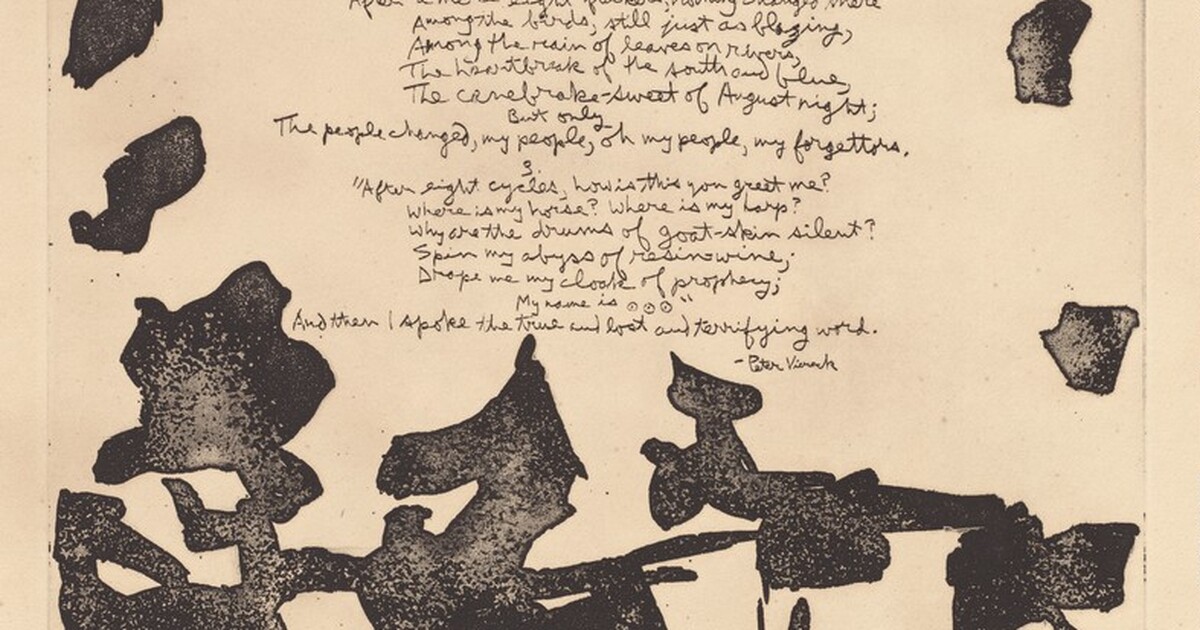 After a me is eight nothing changed there
Among the birds, still just as blazing,
Among the rain of leaves on rivers,
The heartbreak of the south and blue,
The canebrake-sweet of August night;
But only
The people changed, my people, oh my people, my forgettors.
3.
"After eight cycles, how is this you greet me?
Where is my horse? Where is my harp?
Why are the drums of goat-skin silent?
Spin my abyss of resin-wine;
Drape me my cloak of prophecy;
My name is ooo"
And then I spoke the true and lost and terrifying word.
- Peter Viereck